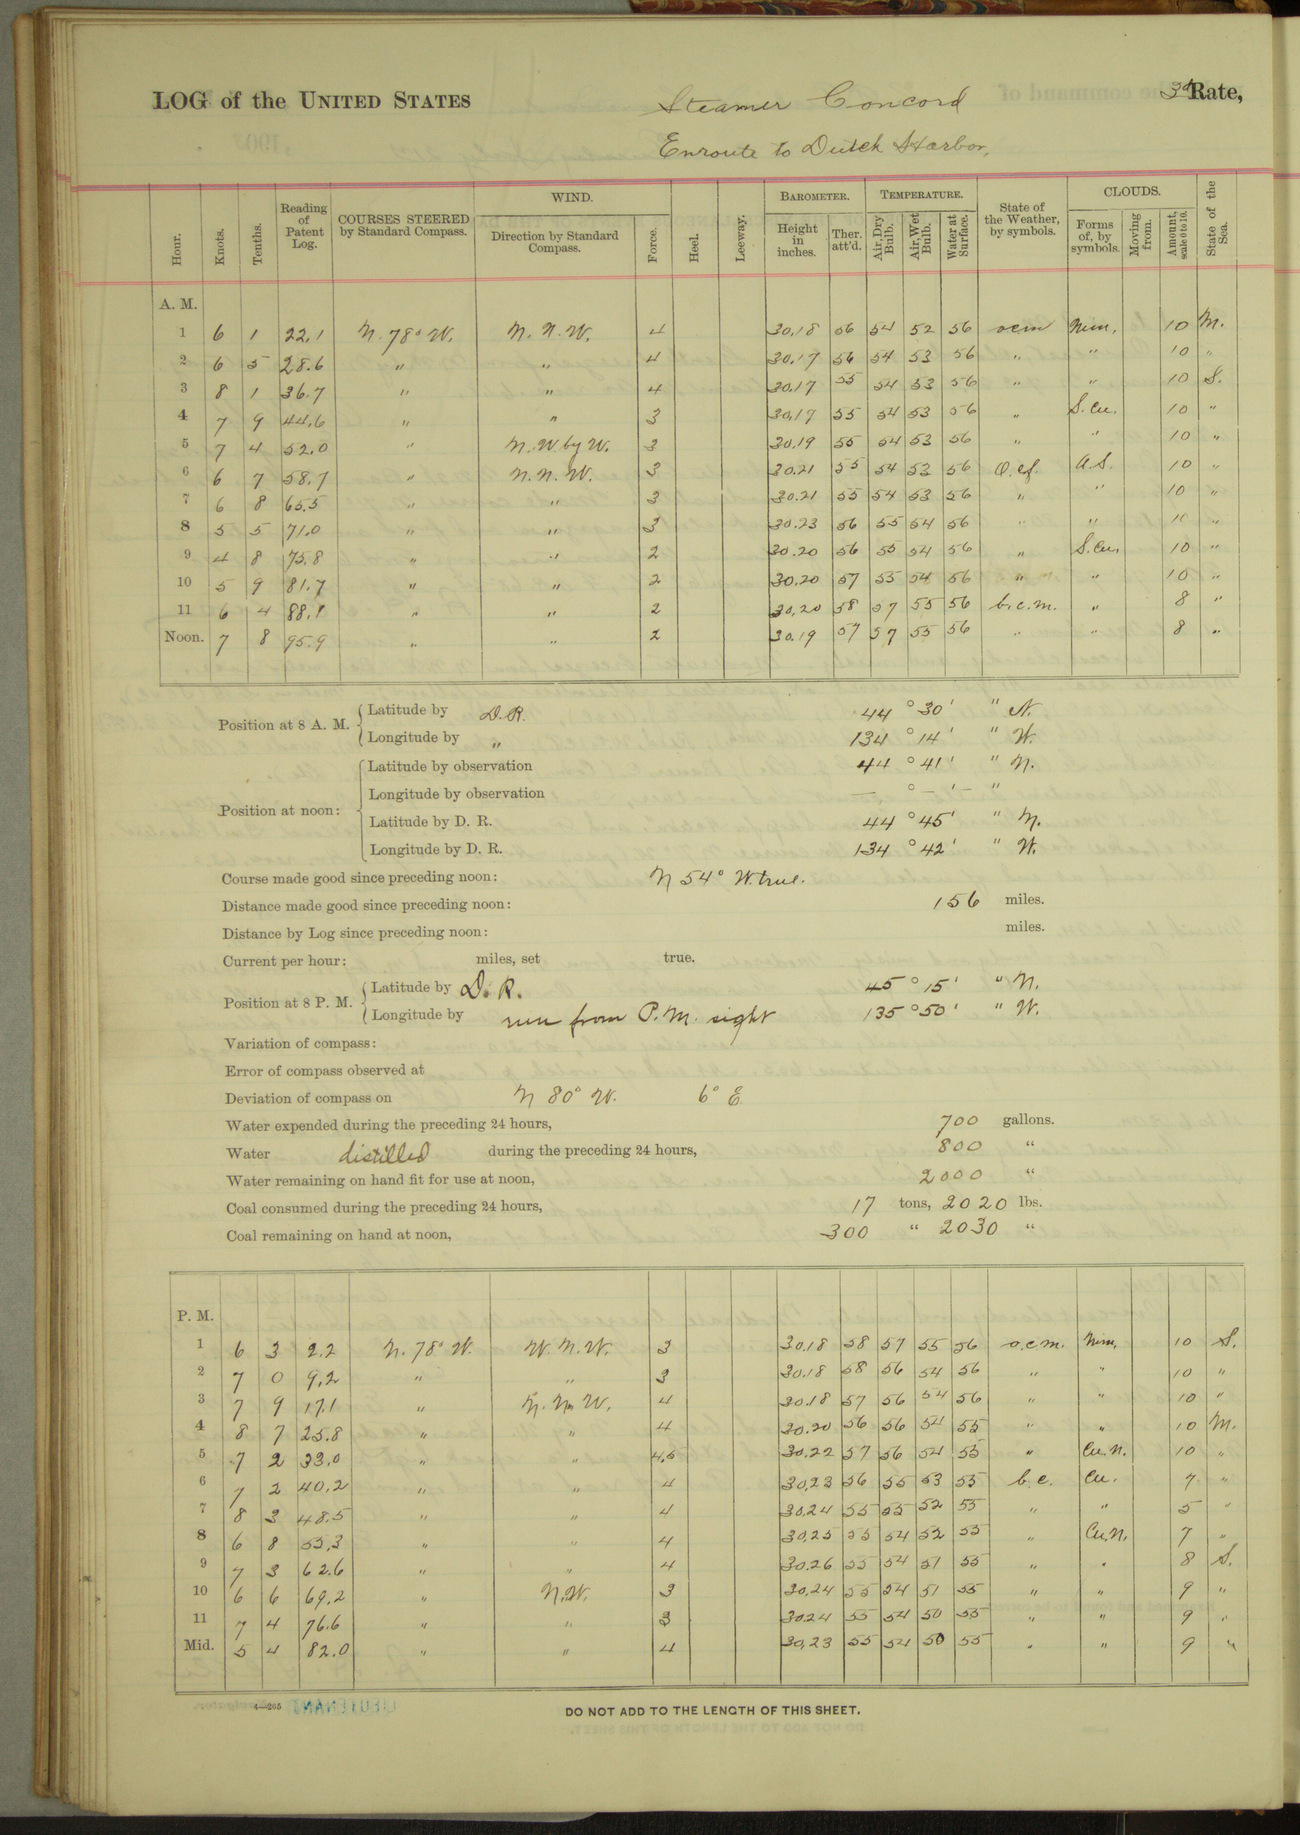 LOG of the UNITED STATES Steamer Concord 3d Rate,
Enroute to Dutch Harbor,
Hour. Knots. Tenths. Reading of Patent Log. COURSES STEERED by Standard Compass. WIND. Direction by Standard Compass. Force. Heel. Leeway. BAROMETER. Height in inches. Ther. att'd. TEMPERATURE. Air, Dry Bulb. Air, Wet Bulb. Water at Surface. State of the Weather, by symbols. CLOUDS. Forms of, by symbols. Moving from. Amount, scale 0 to 10. State of the Sea.
A. M.
1 6 1 22.1 N. 78° W. N. N. W. 4 30.18 56 54 52 56 ocm Nim. 10 M.
2 6 5 28.6 " " 4 30.17 56 54 53 56 " " 10 "
3 8 1 36.7 " " 4 30.17 55 54 53 56 " " 10 S.
4 7 9 44.6 " " 3 30.17 55 54 53 56 " S. Cu. 10 "
5 7 4 52.0 " N. W. by W. 3 30.19 55 54 53 56 " " 10 "
6 6 7 58.7 " N. N. W. 3 30.21 55 54 53 56 O. cf. A. S. 10 "
7 6 8 65.5 " " 3 30.21 55 54 53 56 " " 10 "
8 5 5 71.0 " " 3 30.23 56 55 54 56 " " 10 "
9 4 8 75.8 " " 2 30.20 56 55 54 56 " S. Cu. 10 "
10 5 9 81.7 " " 2 30.20 57 55 54 56 " " 10 "
11 6 4 88.1 " " 2 30.20 58 57 55 56 b. c. m. " 8 "
Noon. 7 8 95.9 " " 2 30.19 57 57 55 56 " " 8 "
Position at 8 A. M. Latitude by D. R. 44 ° 30 ' " N.
Longitude by " 134 ° 14 ' " W.
Position at noon: Latitude by observation 44 ° 41 ' " N.
Longitude by observation — ° — ' — "
Latitude by D. R. 44 ° 45 ' " N.
Longitude by D. R. 134 ° 42 ' " W.
Course made good since preceding noon: N 54° W. true.
Distance made good since preceding noon: 156 miles.
Distance by Log since preceding noon: miles.
Current per hour: miles, set true.
Position at 8 P. M. Latitude by D. R. 45 ° 15 ' " N.
Longitude by run from P. M. sight 135 ° 50 ' " W.
Variation of compass:
Error of compass observed at
Deviation of compass on N 80° W. 6° E
Water expended during the preceding 24 hours, 700 gallons.
Water distilled during the preceding 24 hours, 800 "
Water remaining on hand fit for use at noon, 2000 "
Coal consumed during the preceding 24 hours, 17 tons, 2020 lbs.
Coal remaining on hand at noon, 300 " 2030 "
P. M.
1 6 3 2.2 N. 78° W. W. N. W. 3 30.18 58 57 55 56 o.c.m. Nim. 10 S.
2 7 0 9.2 " " 3 30.18 58 56 54 56 " " 10 "
3 7 9 17.1 " N. N. W. 4 30.18 57 56 54 56 " " 10 "
4 8 7 25.8 " " 4 30.20 56 56 54 55 " " 10 M.
5 7 2 33.0 " " 4.5 30.22 57 56 54 55 " Cu. N. 10 "
6 7 2 40.2 " " 4 30.23 56 55 53 55 b. c. Cu. 7 "
7 8 3 48.5 " " 4 30.24 55 55 52 55 " " 5 "
8 6 8 55.3 " " 4 30.25 55 54 52 55 " Cu. N. 7 "
9 7 3 62.6 " " 4 30.26 55 54 51 55 " " 8 S.
10 6 6 69.2 " N. W. 3 30.24 55 54 51 55 " " 9 "
11 7 4 76.6 " " 3 30.24 55 54 50 55 " " 9 "
Mid. 5 4 82.0 " " 4 30.23 55 54 50 55 " " 9 "
4—265 DO NOT ADD TO THE LENGTH OF THIS SHEET.